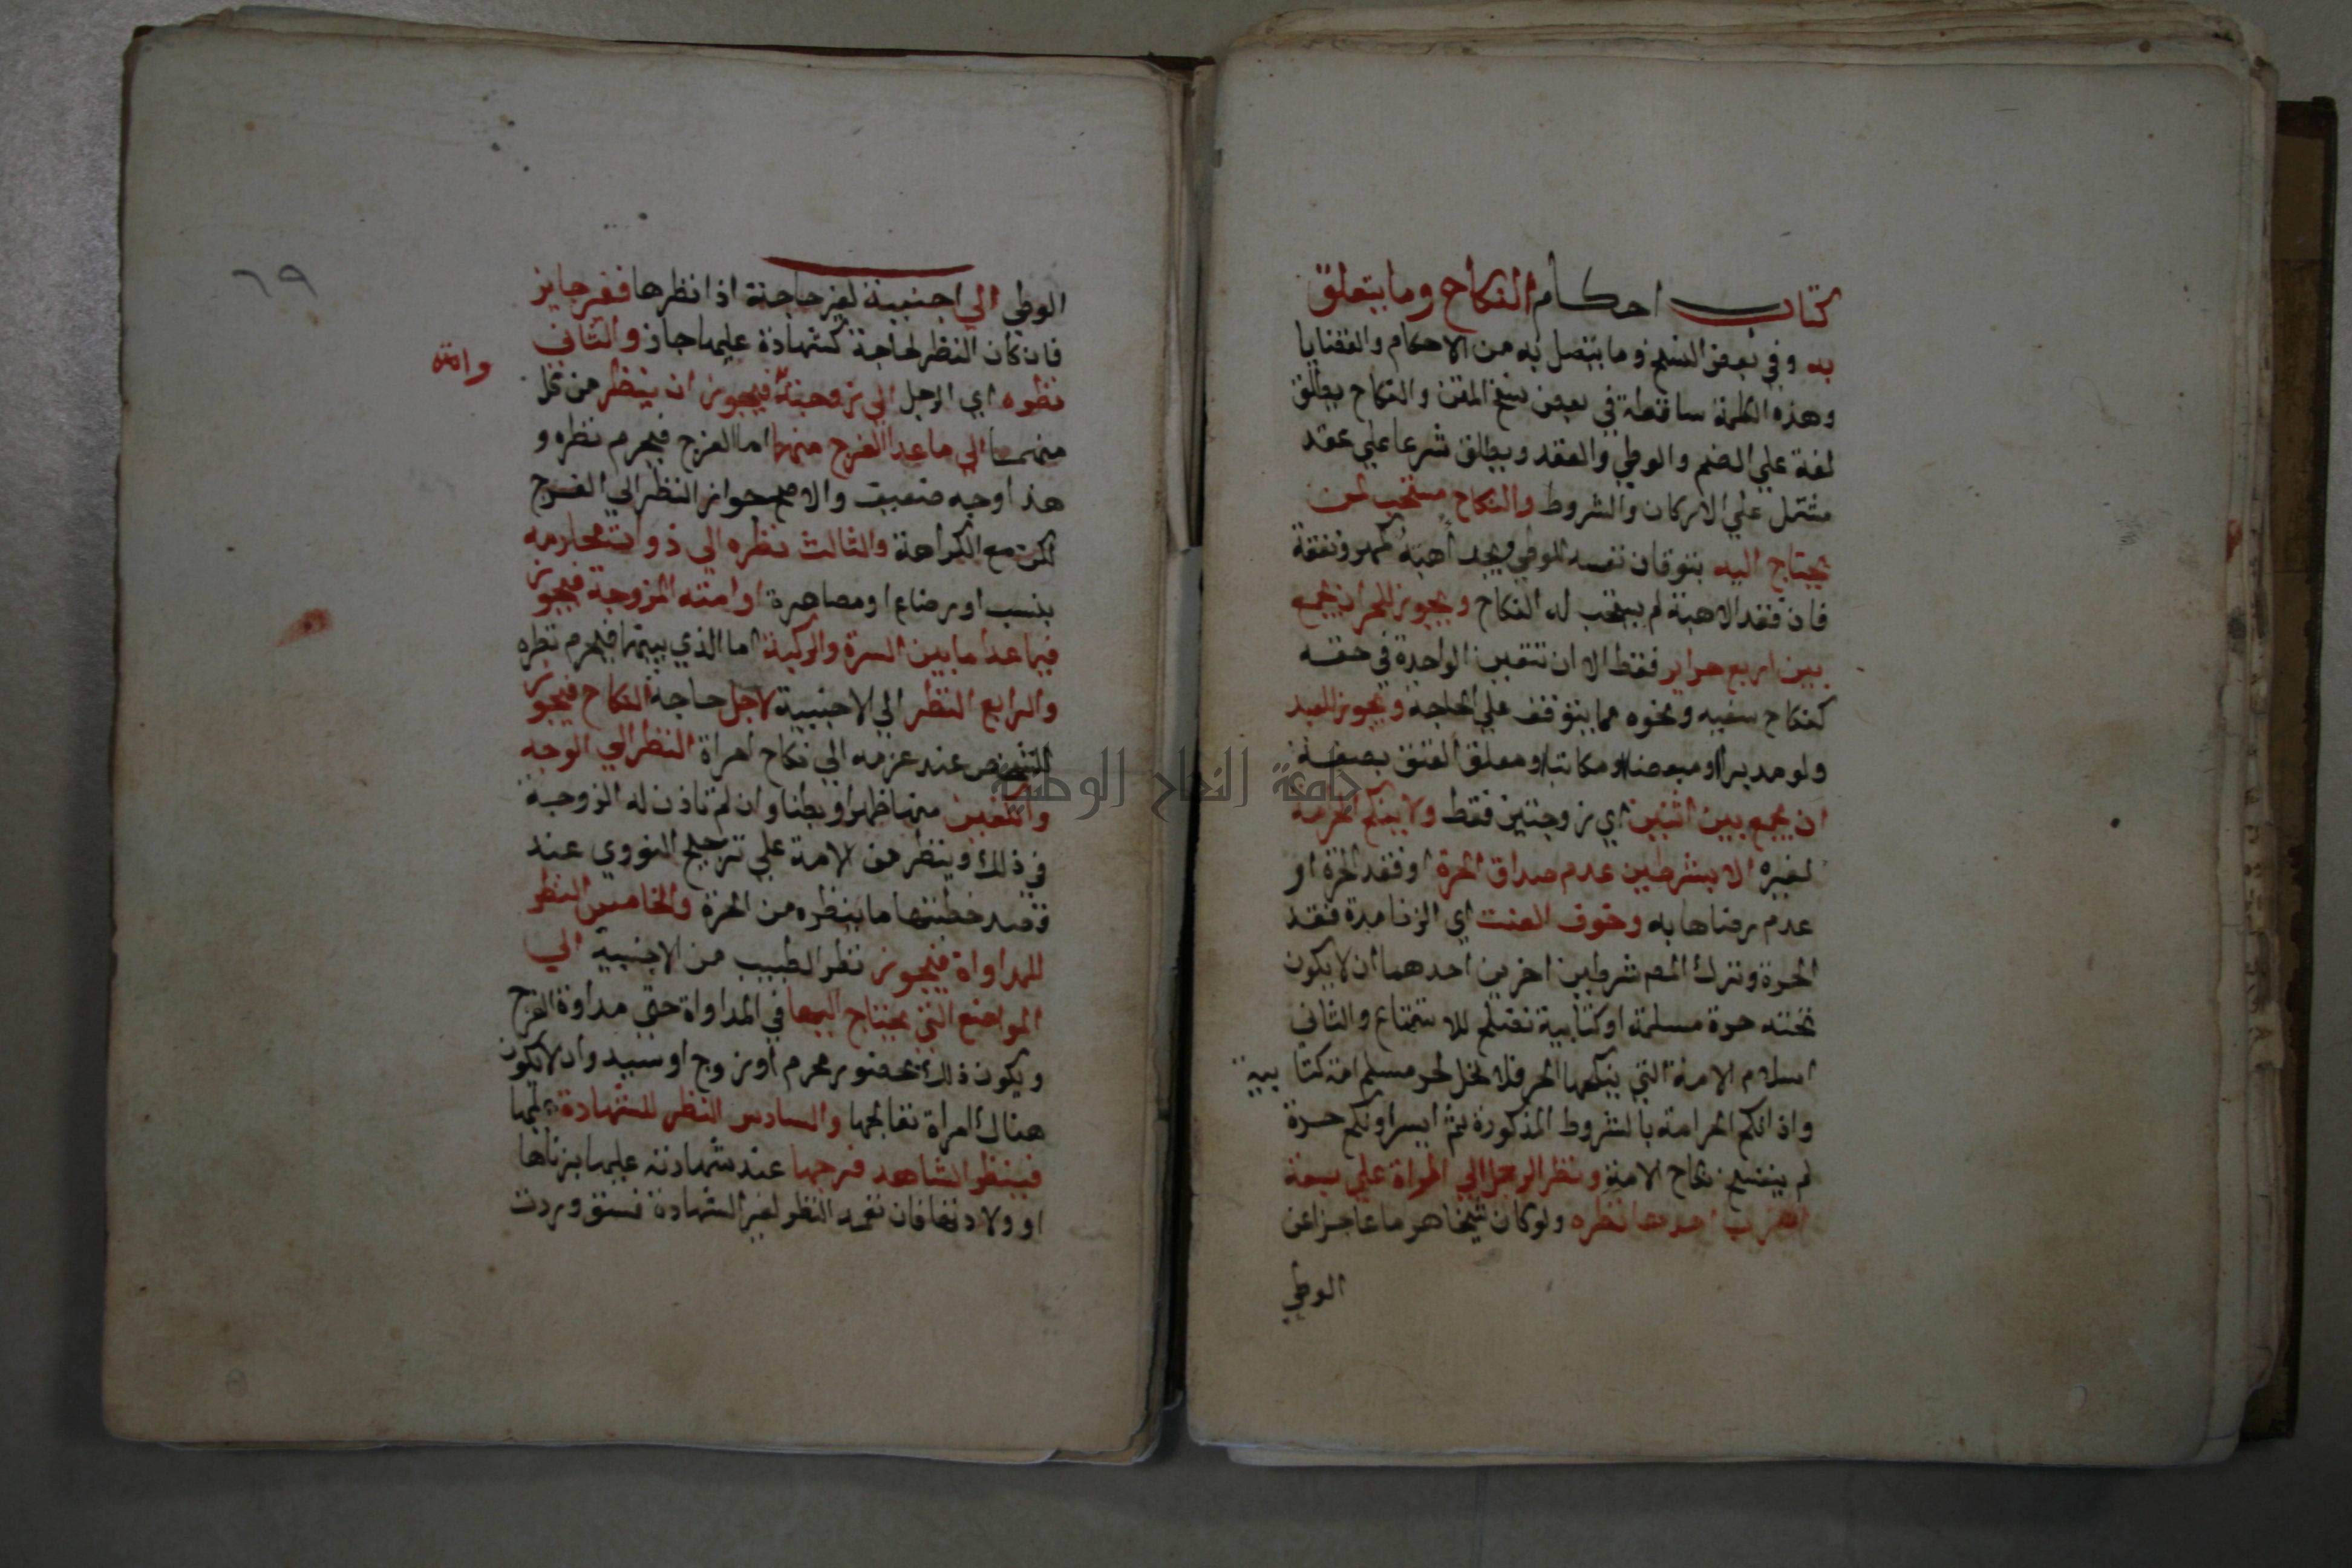 كتاب احكام النكاح وما يتعلق
به وفي بعض النسخ وما يتصل به من الاحكام والقضايا
وهذه الكلمة ساقطة في بعض نسخ المتن والنكاح يطلق
لغة علي الضم والوطي والعقد ويطلق شرعا علي عقد
مشتمل علي الاركان والشروط والنكاح مستحب لمن
يحتاج اليه بتوقان نفسه للوطي ويجد اهبة كمهر ونفقة
فان فقد الاهبة لم يستحب له النكاح ويجوز للحر ان يجمع
بين اربع حراير فقط الا ان تتعين الواحدة في حقه
كنكاح سفيه ونحوه مما يتوقف علي الحاجة ويجوز للعبد
ولو مدبرا او مبعضا او مكاتبا او معلق العتق بصفة
ان يجمع بين اثنين اي زوجتين فقط ولا ينكح الحر امة
لغيره الا بشرطين عدم صداق الحرة او فقد الحرة او
عدم رضاها به وخوف العنت اي الزنا مدة فقد
الحرة وترك المص شرطين اخرين احدهما ان لا يكون
تحته حرة مسلمة او كتابية تصلح للاستمتاع والثاني
اسلام الامة التي ينكحها الحر فلا تحل لحر مسلم امة كتابية
واذا نكح الحر امة بالشروط المذكورة ثم ايسر او نكح حرة
لم ينفسخ نكاح الامة ونظر الرجل الي المراة علي سبعة
اضرب احدها نظره ولو كان شيخا هرما عاجزا عن
الوطي
٦٩
الوطي الي اجنبية لغير حاجة اذا نظرها فغير جايز
فان كان النظر لحاجة كشهادة عليها جاز والثاني
نظره اي الرجل الي زوجته فيجوز ان ينظر من كل
وامته
منهما الي ما عدا الفرج منهما اما الفرج فيحرم نظره و
هذا وجه ضعيف والاصح جواز النظر الي الفرج
لكن مع الكراهة والثالث نظره الي ذوات محارمه
بنسب او رضاع او مصاهرة او امته المزوجة فيجوز
فيما عدا ما بين السرة والركبة اما الذي بينهما فيحرم نظره
والرابع النظر الي الاجنبية لاجل حاجة النكاح فيجوز
للشخص عند عزمه الي نكاح امراة النظر الي الوجه
والكفين منها ظهرا وبطنا وان لم تاذن له الزوجة
في ذلك وينظر من الامة علي ترجيح النووي عند
قصد خطبتها ما ينظره من الحرة والخامس النظر
للمداواة فيجوز نظر الطبيب من الاجنبية الي
المواضع التي يحتاج اليها في المداواة حتي مداوة الفرج
ويكون ذلك بحضور محرم او زوج او سيد وان لا يكون
هناك امراة تعالجها والسادس النظر للشهادة عليها
فينظر الشاهد فرجها عند شهادته عليها بزناها
او ولادتها فان تعمد النظر لغير الشهادة فسق وردت
جامعة النجاح الوطنية